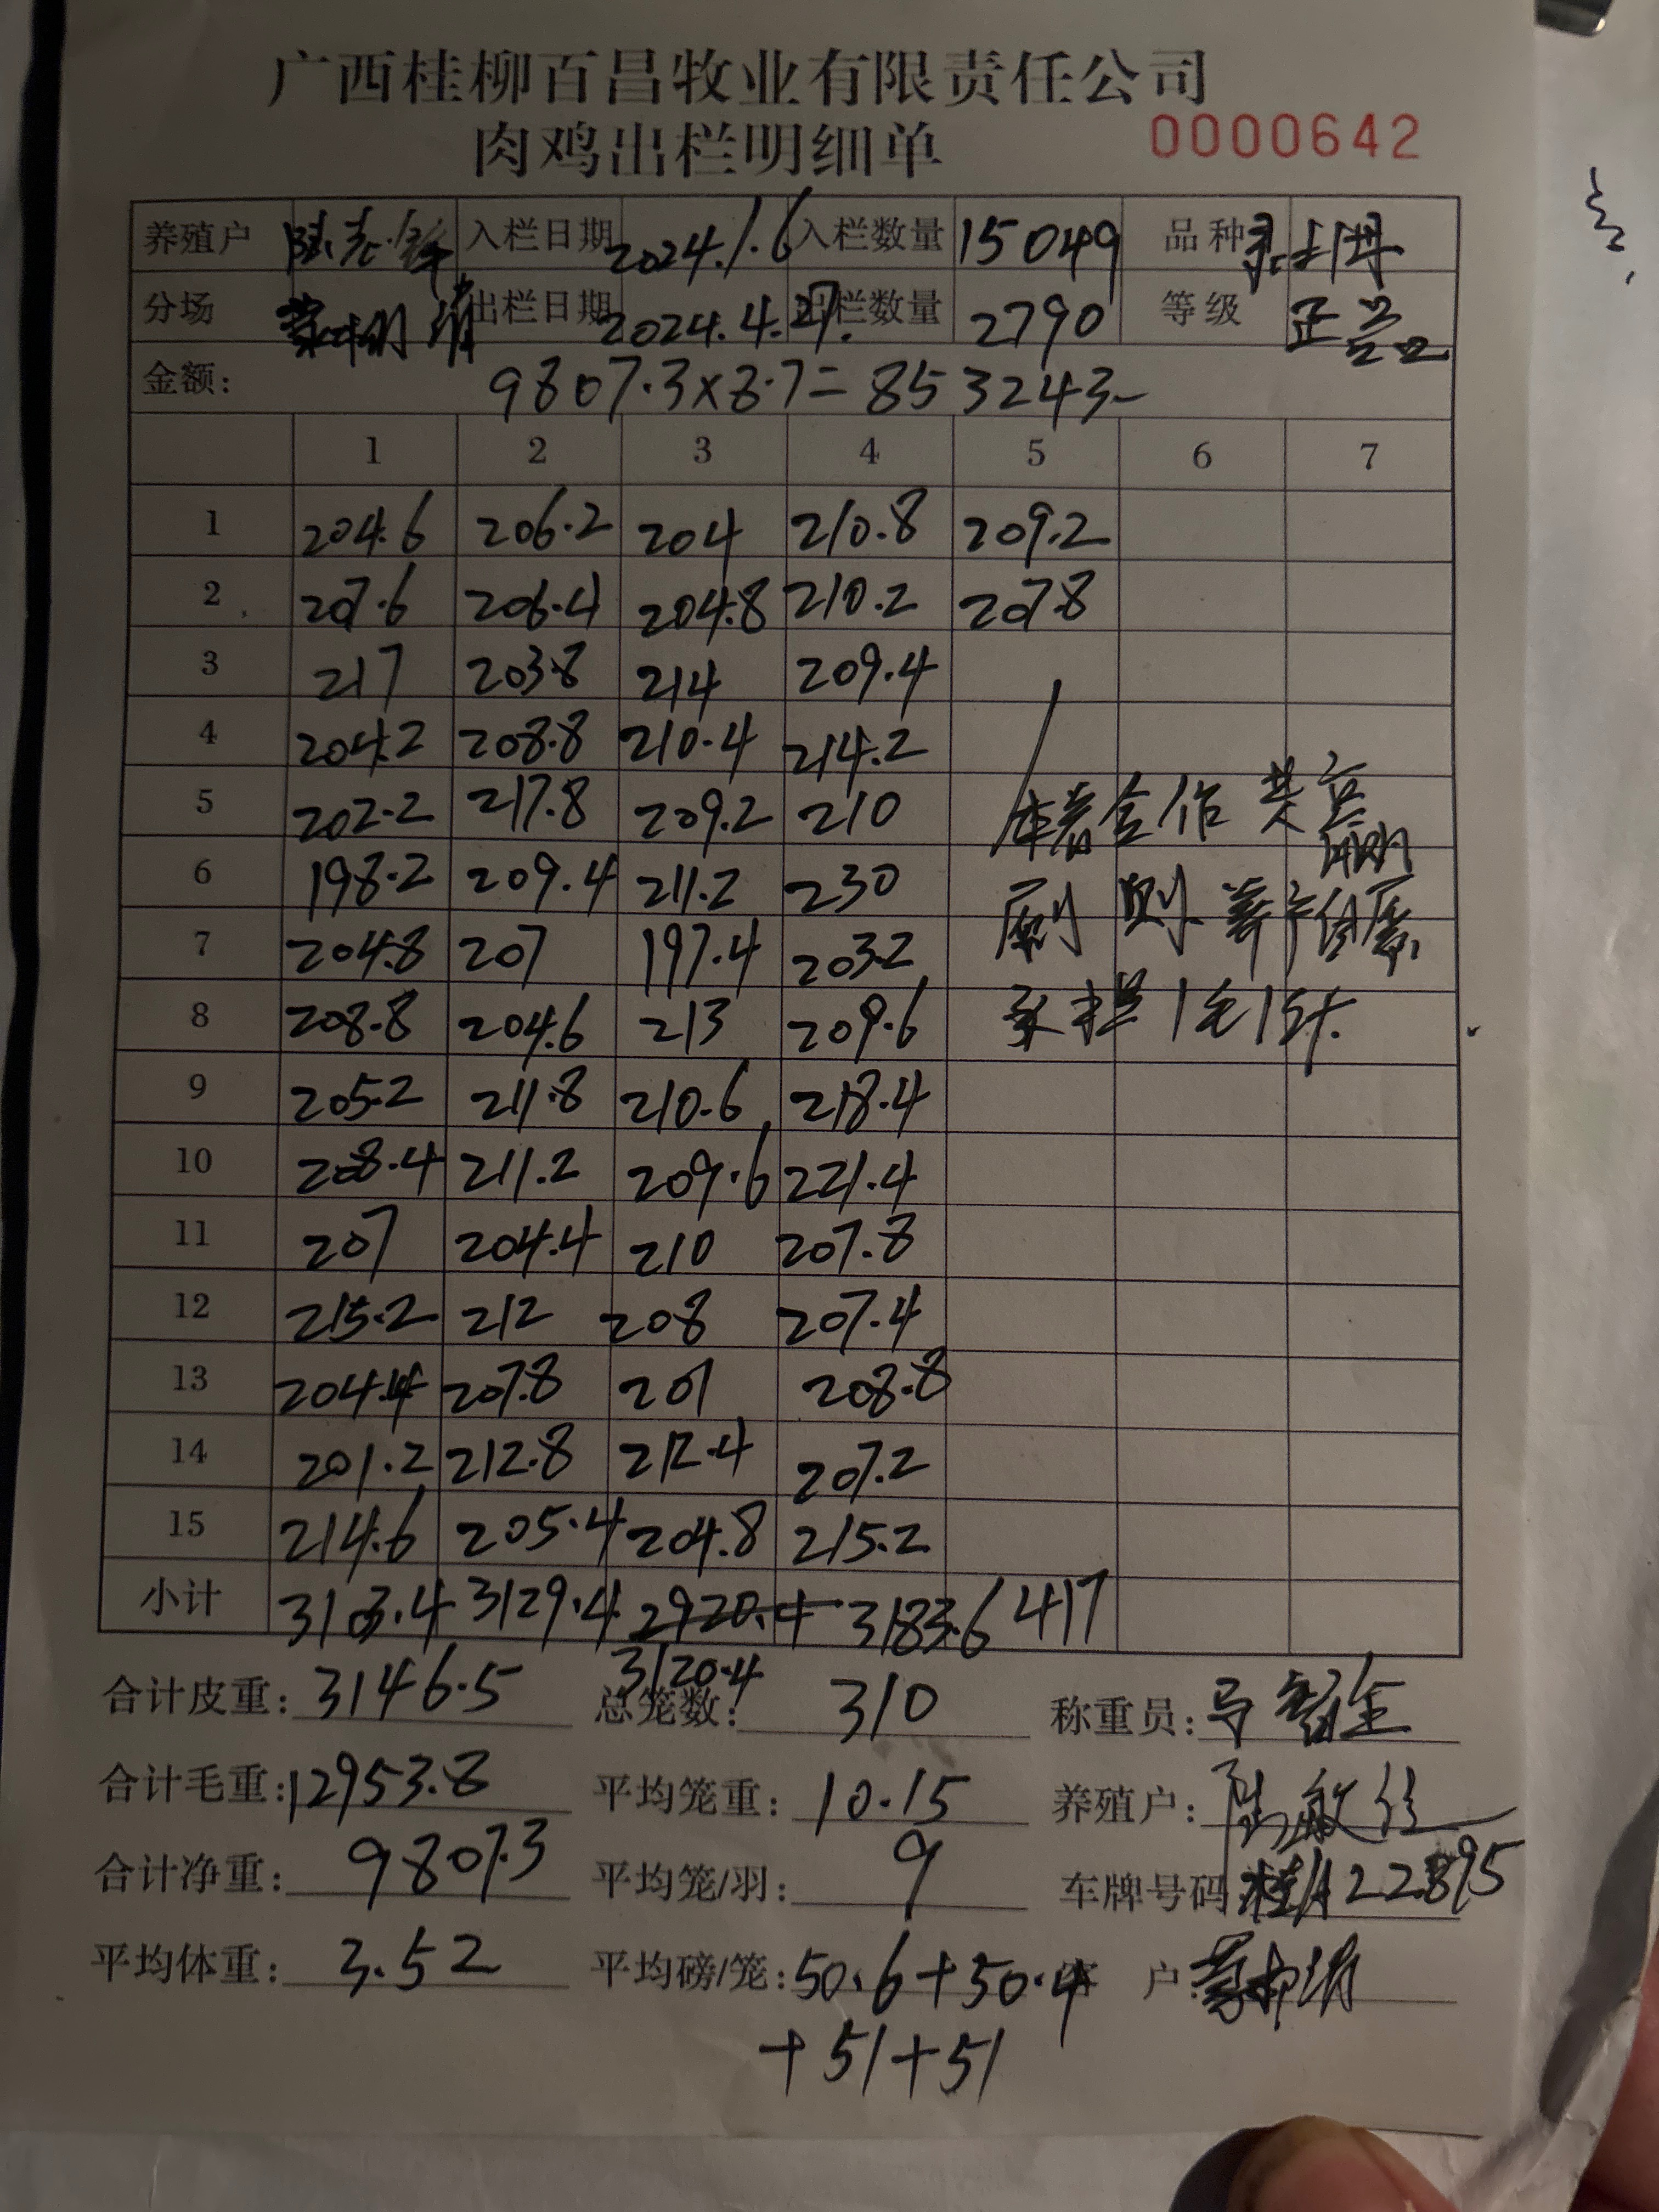 广西桂柳百昌牧业有限责任公司
肉鸡出栏明细单 0000642
养殖户 入栏日期 2024.1.6 入栏数量 15049 品种
分场 出栏日期 2024.4.27. 出栏数量 2790 等级 正品
金额: 9807.3×8.7=853243-
1 2 3 4 5 6 7
1 204.6 206.2 204 210.8 209.2
2 207.6 206.4 204.8 210.2 207.8
3 217 203.8 214 209.4
4 204.2 208.8 210.4 214.2
5 202.2 217.8 209.2 210 本着合作共赢
6 198.2 209.4 211.2 230
7 204.8 207 197.4 203.2 原则
8 208.8 204.6 213 209.6
9 205.2 211.8 210.6 218.4
10 208.4 211.2 209.6 221.4
11 207 204.4 210 207.8
12 215.2 212 208 207.4
13 204.4 207.8 201 208.8
14 201.2 212.8 212.4 207.2
15 214.6 205.4 204.8 215.2
小计 3103.4 3129.4 2920.4 3183.6 417
3120.4
合计皮重: 3146.5 总笼数: 310 称重员:
合计毛重: 12953.8 平均笼重: 10.15 养殖户:
合计净重: 9807.3 平均笼/羽: 9 车牌号码 桂A22895
平均体重: 3.52 平均磅/笼: 50.6+50.4 客户:
+51+51